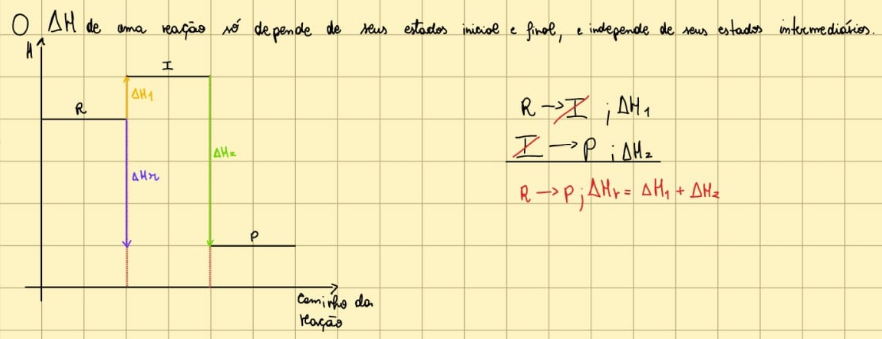 O ΔH de uma reação só depende de seus estados inicial e final, e independe de seus estados intermediários.
H
I
ΔH₁
R
ΔH₂
ΔHr
P
Caminho da
reação
R → I ; ΔH₁
I → P ; ΔH₂
R → P; ΔHr = ΔH₁ + ΔH₂